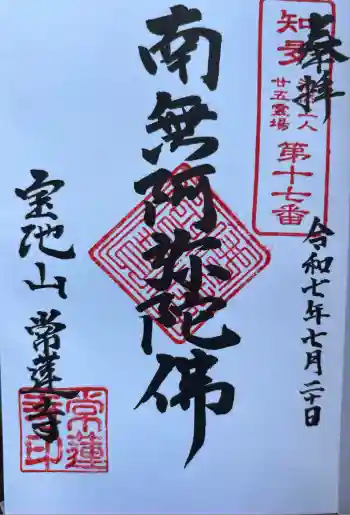 奉拝
知多法然上人
廿五霊場
第十七番
令和七年七月二十日
南無阿弥陀佛
宝池山 常蓮寺
常蓮
寺印